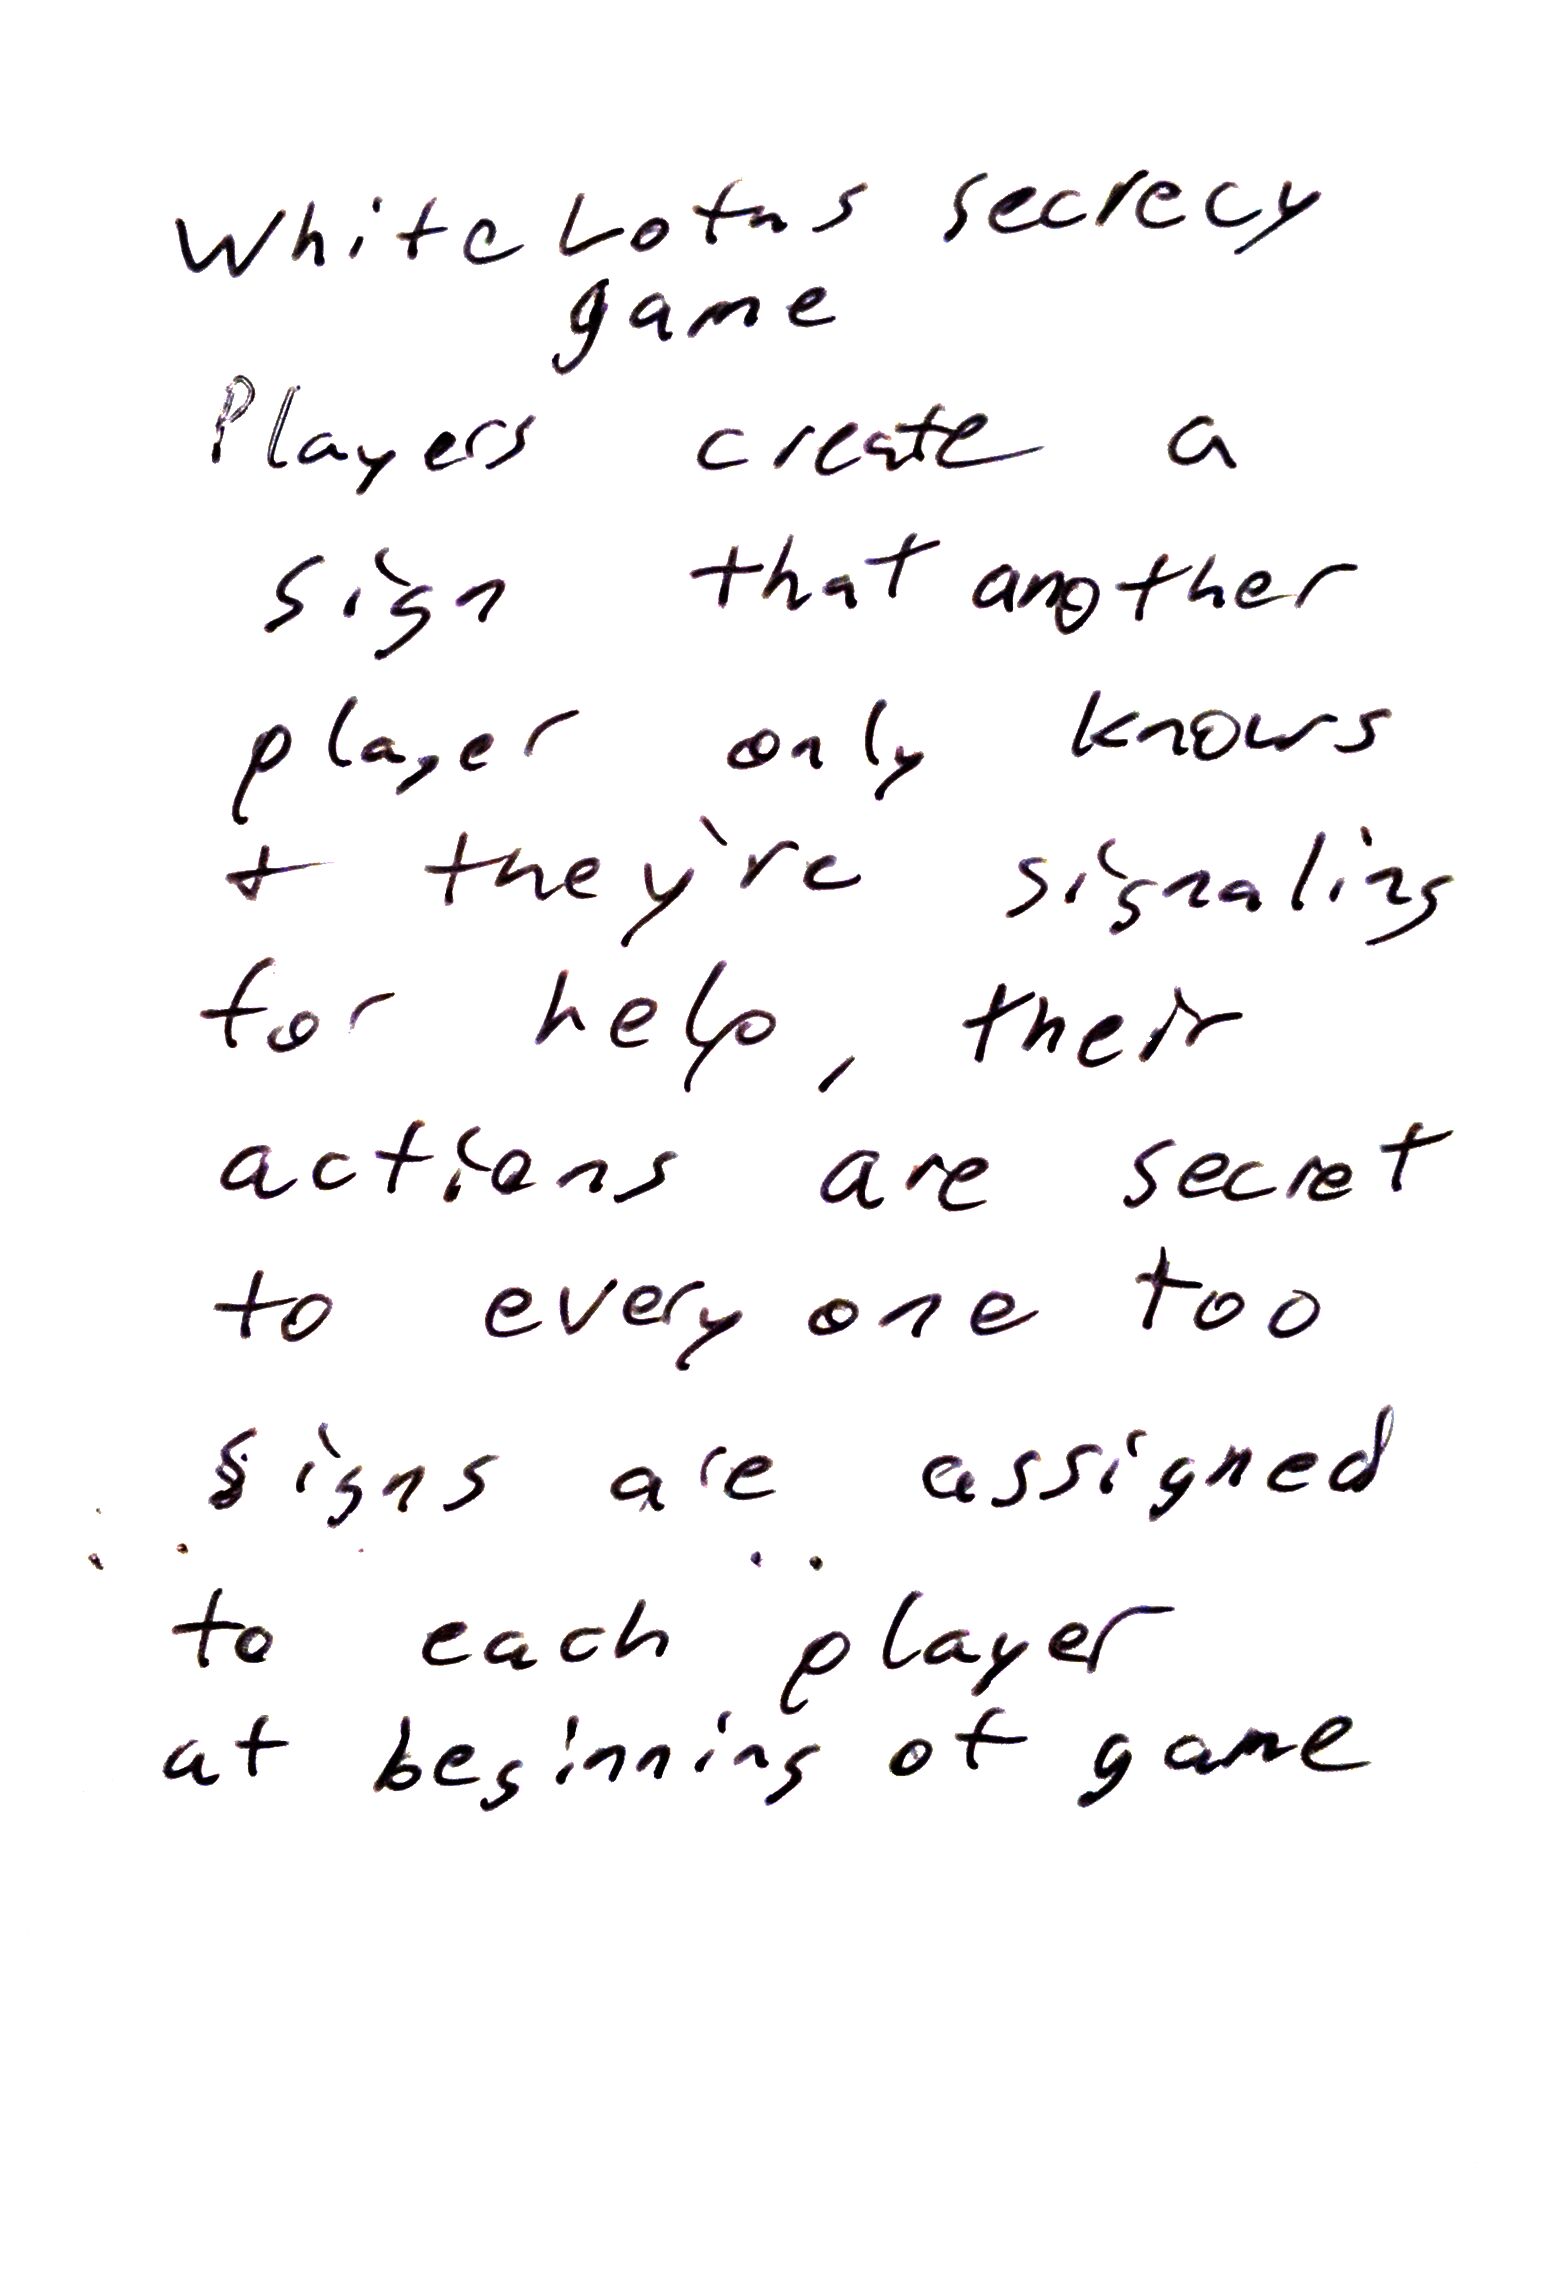 White Lotus secrecy
game
Players create a
sign that another
player only knows
+ they're signaling
for help, their
actions are secret
to everyone too
Signs are assigned
to each player
at beginning of game